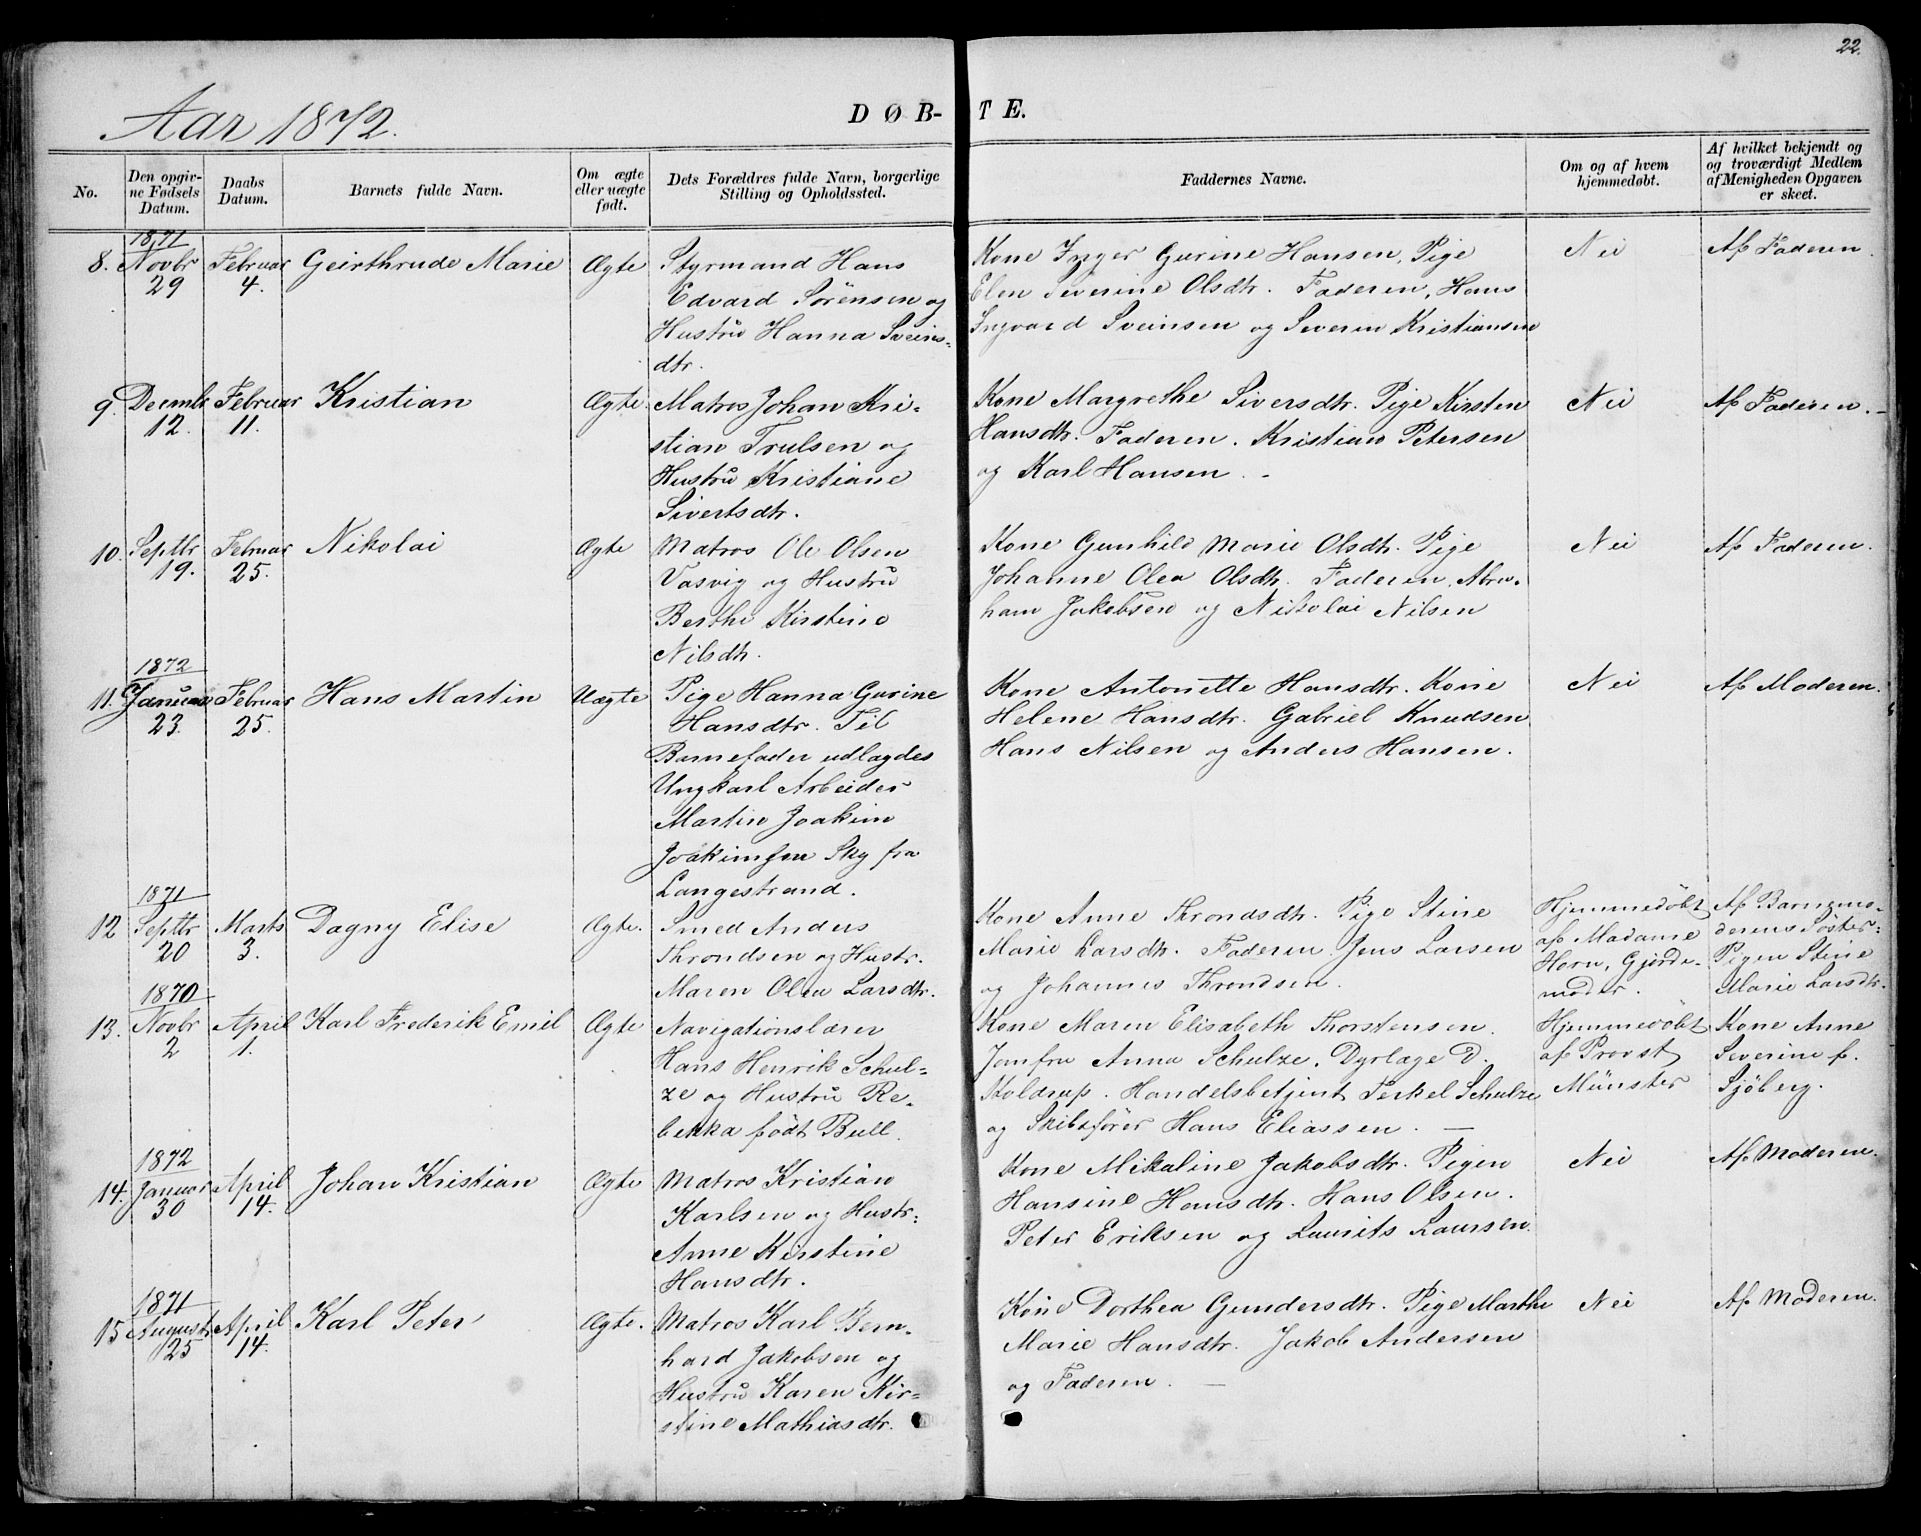 22.
Aar 1872.
DØB-TE.
No.
Den opgivne Fødsels Datum.
Daabs Datum.
Barnets fulde Navn.
Om ægte eller uægte født.
Dets Forældres fulde Navn, borgerlige Stilling og Opholdssted.
Faddernes Navne.
Om og af hvem hjemmedøbt.
Af hvilket bekjendt og og troværdigt Medlem af Menigheden Opgaven er skeet.
8.
1871
Novbr
29
Februar
4.
Geirthrude Marie
Ægte
Styrmand Hans
Edvard Sörensen og
Hustrů Hanna Sveins-
dtr.
Kone Inger Gurine Hansen, Pige
Elen Severine Olsdtr. Faderen, Hans
Ingvard Sveinsen og Severin Kristiansen
Nei
Af Faderen.
9.
Decmbr
12.
Februar
11.
Kristian
Ægte.
Matros Johan Kri-
stian Trulsen og
Hustrů Kristiane
Sivertsdtr.
Kone Margrethe Siversdtr. Pige Kirsten
Hansdtr. Faderen. Kristian Petersen
og Karl Hansen. -
Nei
Af Faderen. -
10.
Septbr
19.
Februar
25.
Nikolai
Ægte
Matros Ole Olsen
Vasvig og Hustrů
Berthe Kirstine
Nilsdtr.
Kone Gunhild Marie Olsdtr. Pige
Johanne Olea Olsdtr. Faderen, Abra-
ham Jakobsen og Nikolai Nilsen
Nei
Af Faderen.
11.
1872
Januar
23.
Februar
25.
Hans Martin
Uægte
Pige Hanna Gurine
Hansdtr. Til
Barnefader udlagdes
Ungkarl Arbeider
Martin Joakim
Joakimsen Sky fra
Langestrand.
Kone Antonette Hansdtr. Kone
Helene Hansdtr. Gabriel Knudsen
Hans Nilsen og Anders Hansen.
Nei
Af Moderen.
12
1871
Septbr
20
Marts
3.
Dagny Elise
Ægte.
Smed Anders
Throndsen og Hustr.
Maren Olea Larsdtr.
Kone Anne Throndsdtr. Pige Stine
Marie Larsdtr. Faderen Jens Larsen
og Johannes Throndsen.
Hjemmedöbt
af Madame
Horn, Gjorde-
moder.
Af Barnemo-
derens Söster:
Pigen Stine
Marie Larsdtr.
13.
1870
Novbr
2
April
1.
Karl Frederik Emil
Ægte
Navigationslærer
Hans Henrik Schul-
ze og Hustrů Re-
bekka födt Bull.
Kone Maren Elisabeth Thorstensen.
Jomfru Anna Schulze. Dyrlæge D.
Koldrup. Handelsbetjent Terkel Schulze
og Skibsförer Hans Eliassen. -
Hjemmedöbt
af Provst
Münster
Kone Anne
Severine f.
Sjöberg.
14.
1872
Januar
30
April
14.
Johan Kristian
Ægte
Matros Kristian
Karlsen og Hustr:
Anne Kirstine
Hansdtr.
Kone Mikaline Jakobsdtr. Pigen
Hansine Hansdtr. Hans Olsen.
Peter Eriksen og Laurits Laursen.
Nei
Af Moderen.
15
1871
August
25
April
14.
Karl Peter
Ægte.
Matros Karl Bern-
hard Jakobsen og
Hustrů Karen Kir-
stine Mathiasdtr.
Kone Dorthea Gundersdtr. Pige Marthe
Marie Hansdtr. Jakob Andersen
og Faderen. -
Nei
Af Moderen.